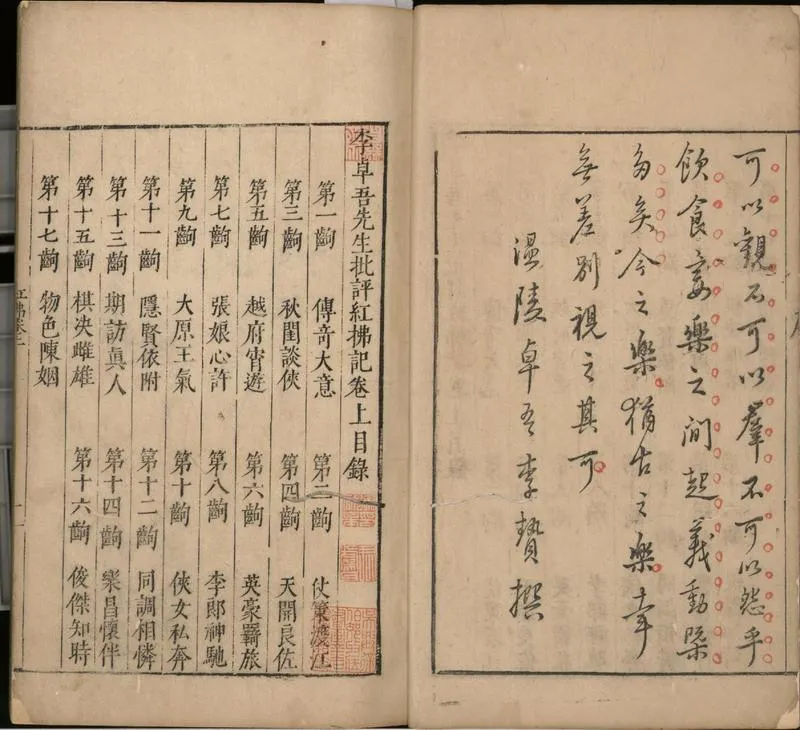 可以觀不可以羣不可以怨乎
飲食宴樂之間起義動槩
多矣今之樂猶古之樂幸
無差別視之其可
温陵卓吾李贄撰
李卓吾先生批評紅拂記卷上目錄
第一齣 傳奇大意 第二齣 仗策渡江
第三齣 秋閨談俠 第四齣 天開良佐
第五齣 越府宵遊 第六齣 英豪羈旅
第七齣 張娘心許 第八齣 李郎神馳
第九齣 大原王氣 第十齣 俠女私奔
第十一齣 隱賢依附 第十二齣 同調相憐
第十三齣 期訪眞人 第十四齣 樂昌懷伴
第十五齣 棋決雌雄 第十六齣 俊傑知時
第十七齣 物色陳姻